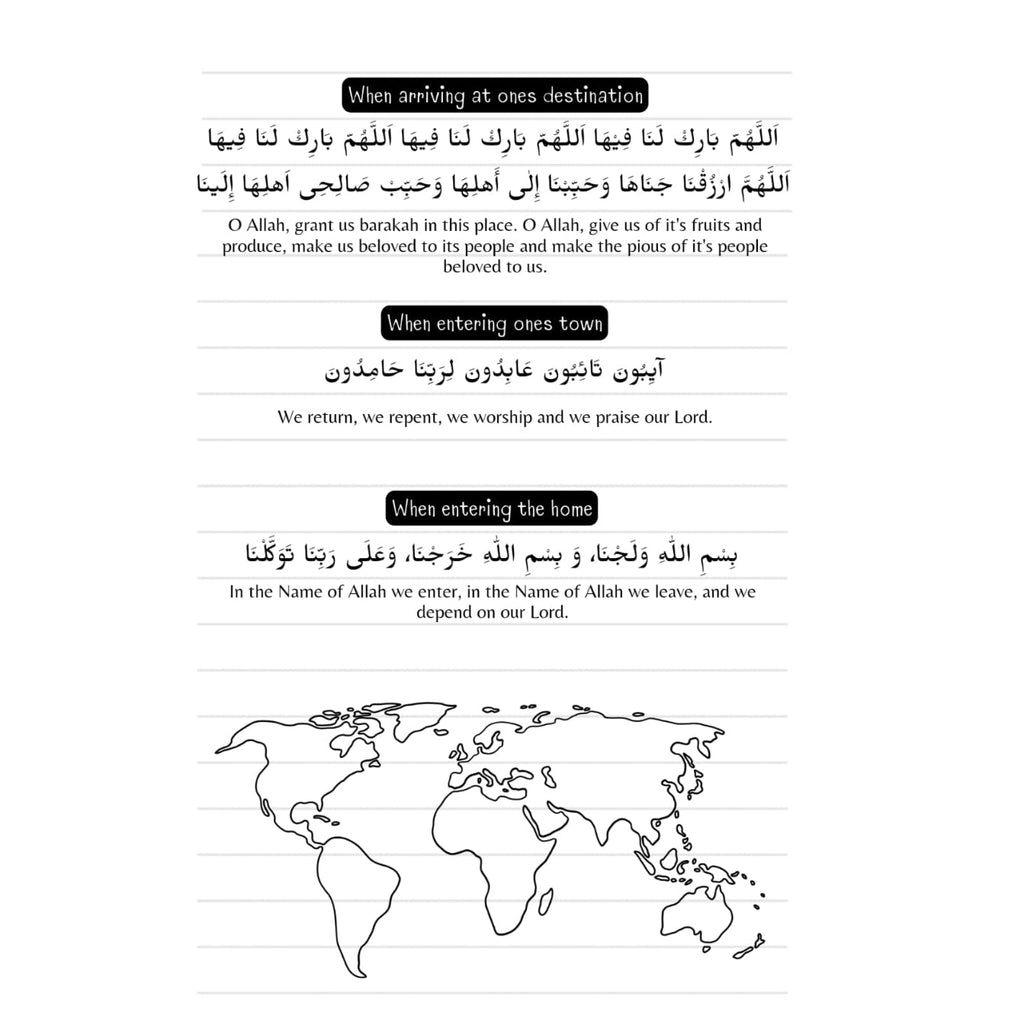 When arriving at ones destination
اَللَّهُمّ بَارِكْ لَنَا فِيْهَا اَللَّهُمّ بَارِكْ لَنَا فِيهَا اَللَّهُمّ بَارِكْ لَنَا فِيهَا
اَللَّهُمَّ ارْزُقْنَا جَنَاهَا وَحَبِّبْنَا إِلٰى أَهلِهَا وَحَبِّبْ صَالِحِى اَهلِهَا إِلَينَا
O Allah, grant us barakah in this place. O Allah, give us of it's fruits and
produce, make us beloved to its people and make the pious of it's people
beloved to us.
When entering ones town
آيِبُونَ تَائِبُونَ عَابِدُونَ لِرَبِّنَا حَامِدُونَ
We return, we repent, we worship and we praise our Lord.
When entering the home
بِسْمِ اللهِ وَلَجْنَا، وَ بِسْمِ اللهِ خَرَجْنَا، وَعَلَى رَبِّنَا تَوَكَّلْنَا
In the Name of Allah we enter, in the Name of Allah we leave, and we
depend on our Lord.